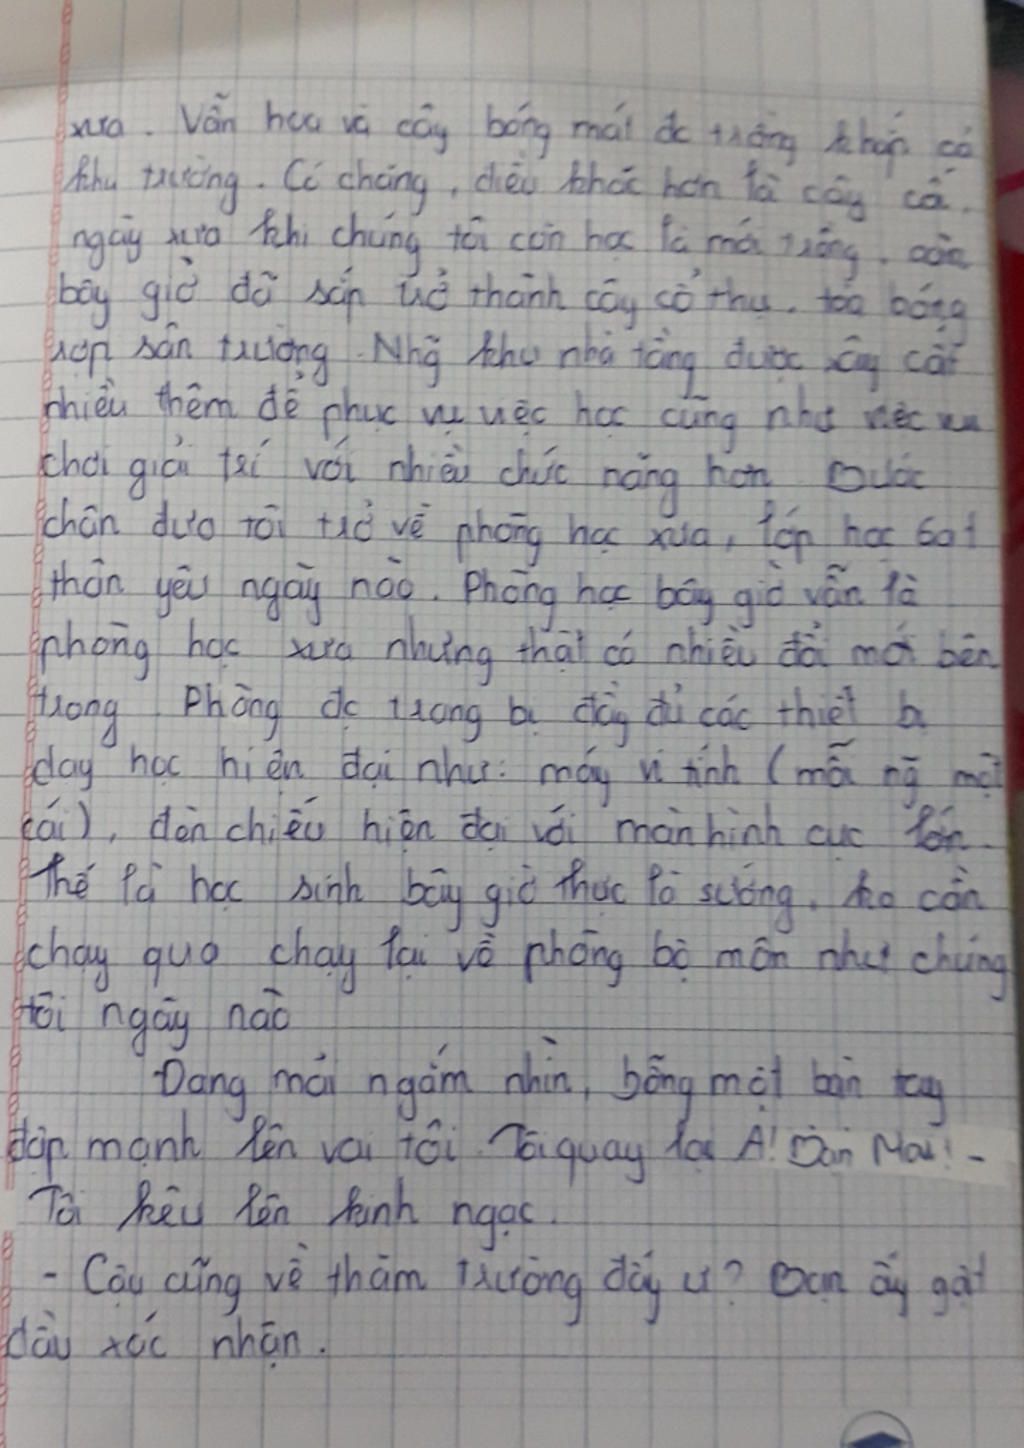 xưa. Vẫn hoa và cây bóng mát đc trồng khắp cả
khu trường. Có chăng, điều khác hơn là cây cối.
ngày xưa khi chúng tôi còn học là mới trồng. còn
bây giờ đã sắp trở thành cây cổ thụ, toả bóng
rợp sân trường. Nhg khu nhà tầng được xây cất
nhiều thêm để phục vụ việc học cũng như việc vui
chơi giải trí với nhiều chức năng hơn Bước
chân đưa tôi trở về phòng học xưa, lớp học 6a1
thân yêu ngày nào. Phòng học bây giờ vẫn là
phòng học xưa nhưng thật có nhiều đổi mới bên
trong Phòng đc trang bị đầy đủ các thiết bị
dạy học hiện đại như: máy vi tính (mỗi ng một
cái), đèn chiếu hiện đại với màn hình cực lớn.
Thế là học sinh bây giờ thực là sướng, ko cần
chạy qua chạy lại về phòng bộ môn như chúng
tôi ngày nào
Đang mải ngắm nhìn, bỗng một bàn tay
đập mạnh lên vai tôi. Tôi quay lại A! Bạn Mai! -
Tôi kêu lên kinh ngạc.
- Cậu cũng về thăm trường đấy ư? Bạn ấy gật
đầu xác nhận.